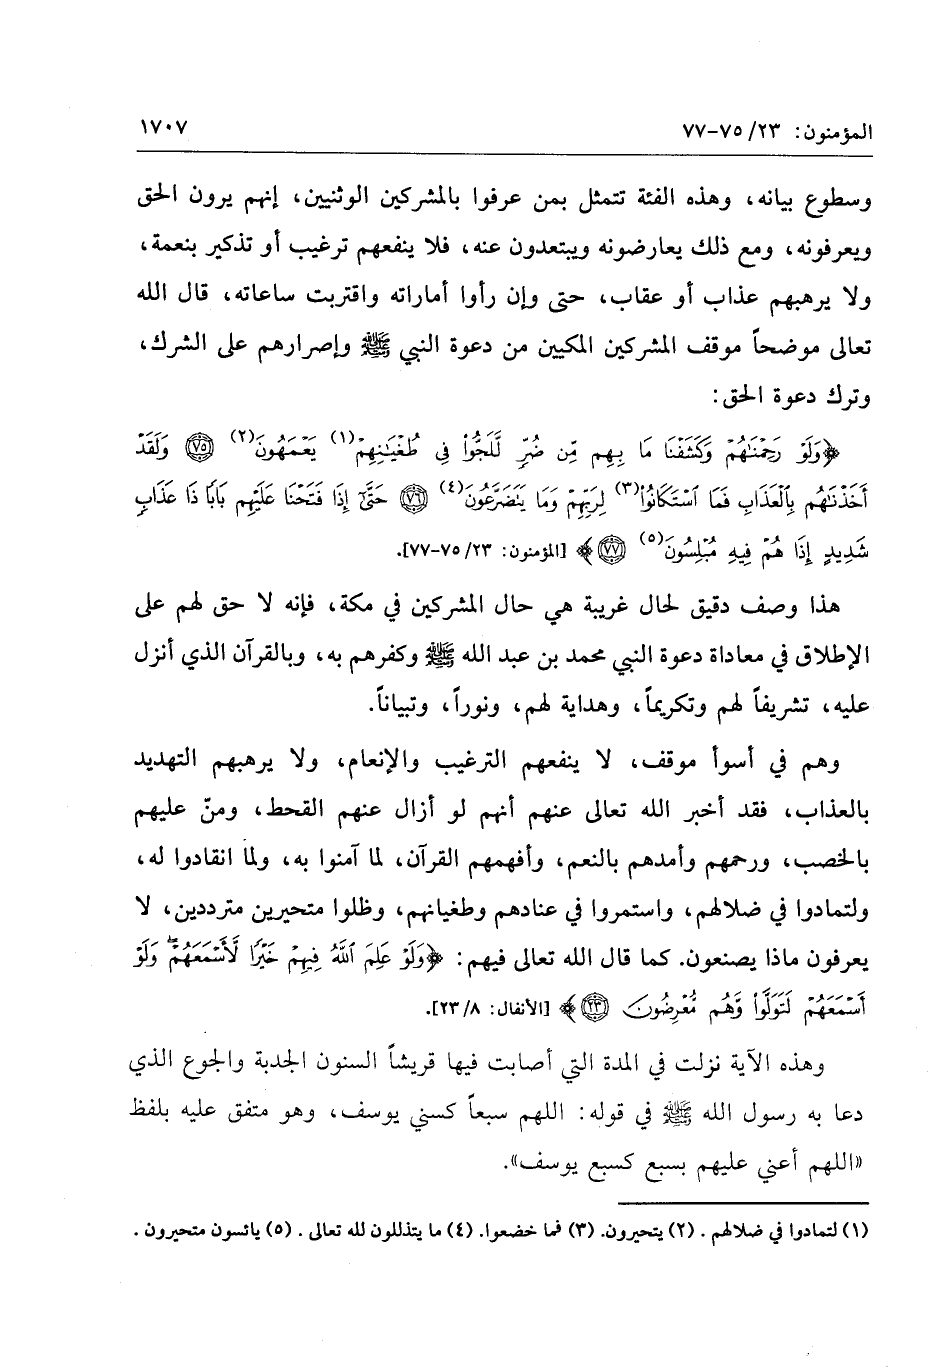 المؤمنون: ٢٣/ ٧٥-٧٧ ١٧٠٧
وسطوع بيانه، وهذه الفئة تتمثل بمن عرفوا بالمشركين الوثنيين، إنهم يرون الحق
ويعرفونه، ومع ذلك يعارضونه ويبتعدون عنه، فلا ينفعهم ترغيب أو تذكير بنعمة،
ولا يرهبهم عذاب أو عقاب، حتى وإن رأوا أماراته واقتربت ساعاته، قال الله
تعالى موضحاً موقف المشركين المكيين من دعوة النبي ﷺ وإصرارهم على الشرك،
وترك دعوة الحق:
﴿وَلَوْ رَحِمْنَٰهُمْ وَكَشَفْنَا مَا بِهِم مِّن ضُرٍّ لَّلَجُّوا۟ فِى طُغْيَٰنِهِمْ(١) يَعْمَهُونَ(٢) ۝٧٥ وَلَقَدْ
أَخَذْنَٰهُم بِٱلْعَذَابِ فَمَا ٱسْتَكَانُوا۟(٣) لِرَبِّهِمْ وَمَا يَتَضَرَّعُونَ(٤) ۝٧٦ حَتَّىٰٓ إِذَا فَتَحْنَا عَلَيْهِم بَابًا ذَا عَذَابٍ
شَدِيدٍ إِذَا هُمْ فِيهِ مُبْلِسُونَ(٥) ۝٧٧﴾ [المؤمنون: ٢٣/ ٧٥-٧٧].
هذا وصف دقيق لحال غريبة هي حال المشركين في مكة، فإنه لا حق لهم على
الإطلاق في معاداة دعوة النبي محمد بن عبد الله ﷺ وكفرهم به، وبالقرآن الذي أنزل
عليه، تشريفاً لهم وتكريماً، وهداية لهم، ونوراً، وتبياناً.
وهم في أسوأ موقف، لا ينفعهم الترغيب والإنعام، ولا يرهبهم التهديد
بالعذاب، فقد أخبر الله تعالى عنهم أنهم لو أزال عنهم القحط، ومنّ عليهم
بالخصب، ورحمهم وأمدهم بالنعم، وأفهمهم القرآن، لما آمنوا به، ولما انقادوا له،
ولتمادوا في ضلالهم، واستمروا في عنادهم وطغيانهم، وظلوا متحيرين مترددين، لا
يعرفون ماذا يصنعون. كما قال الله تعالى فيهم: ﴿وَلَوْ عَلِمَ ٱللَّهُ فِيهِمْ خَيْرًا لَّأَسْمَعَهُمْ ۖ وَلَوْ
أَسْمَعَهُمْ لَتَوَلَّوا۟ وَّهُم مُّعْرِضُونَ ۝٢٣﴾ [الأنفال: ٢٣/٨].
وهذه الآية نزلت في المدة التي أصابت فيها قريشاً السنون الجدبة والجوع الذي
دعا به رسول الله ﷺ في قوله: اللهم سبعاً كسني يوسف، وهو متفق عليه بلفظ
«اللهم أعني عليهم بسبع كسبع يوسف».
(١) لتمادوا في ضلالهم . (٢) يتحيرون. (٣) فما خضعوا. (٤) ما يتذللون لله تعالى . (٥) يائسون متحيرون .